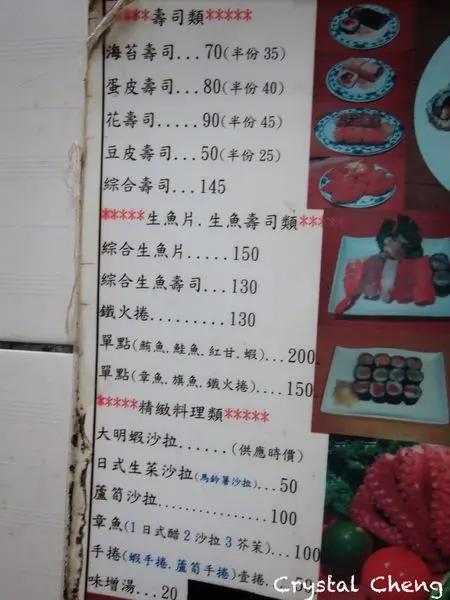 *****壽司類*****
海苔壽司...70(半份35)
蛋皮壽司...80(半份40)
花壽司.....90(半份45)
豆皮壽司...50(半份25)
綜合壽司...145
*****生魚片.生魚壽司類*****
綜合生魚片.....150
綜合生魚壽司...130
鐵火捲.........130
單點(鮪魚.鮭魚.紅甘.蝦)...200
單點(章魚.旗魚.鐵火捲)....150
*****精緻料理類*****
大明蝦沙拉......(供應時價)
日式生菜沙拉(馬鈴薯沙拉)...50
蘆筍沙拉...............100
章魚(1日式醋2沙拉3芥茉)...100
手捲(蝦手捲.蘆筍手捲)壹捲...
味增湯...20
Crystal Cheng